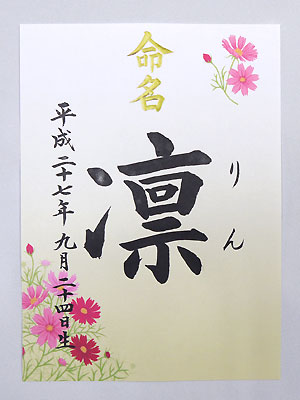 命名
りん
凛
平成二十七年 九月 二十四日生